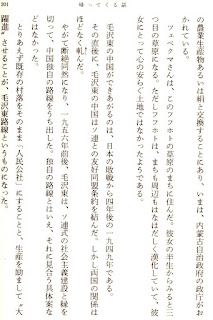 帰ってくる話
の農業生産物あるいは絹と交換することにあり、いまは、内蒙古自治政府の政庁がお
かれている。
ツェベクマさんは、このフフホトの草原のまちに住んだ。彼女の半生からみると三
つ目の草原になる。ただしフフホトは、まちも周辺もなはだしく漢化していて、彼
女にとって心の安らぐ土地ではなかったようである。
毛沢東の中国ができあがるのは、日本の敗戦から四年後の一九四九年である。
その直後に、毛沢東の中国はソ連との友好同盟条約を結んだ。しかし両国の関係は
ほどなく軋んだ。
やがて断絶同然になり、一九五六年前後、毛沢東は、ソ連式の社会主義建設と縁を
切って、中国独自の路線をうち出した。独自の路線とはいえ、それに見合う具体案な
どはなかった。
とりあえず既存の村落をそのまま「人民公社」にすることと、生産を励まして〝大
躍進〟させることが、毛沢東路線というものになった。